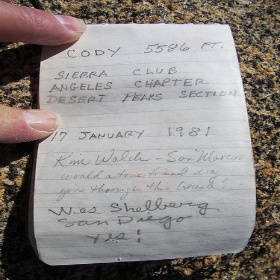 CODY 5586 FT.
SIERRA CLUB
ANGELES CHAPTER
DESERT PEAKS SECTION
17 JANUARY 1981
Kim Walch - San Marcos
would a tone
you through this
Wes Shelberg
San Diego
Yes!